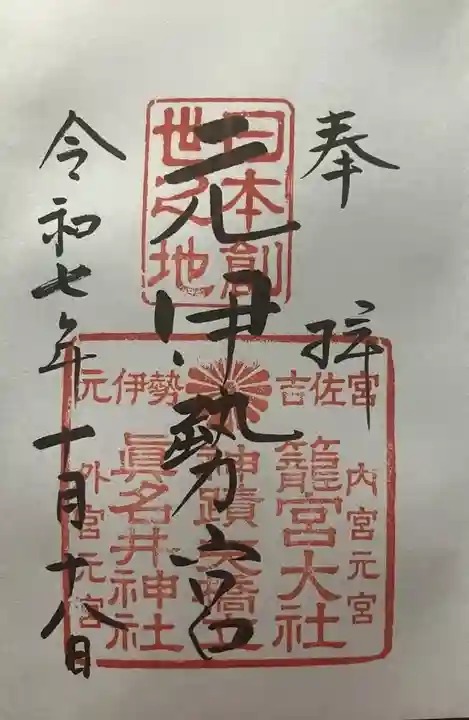 奉拝
日本創
世之地
元伊勢宮
元伊勢 吉佐宮
内宮元宮
籠宮大社
眞名井神社
外宮元宮
令和七年一月十八日